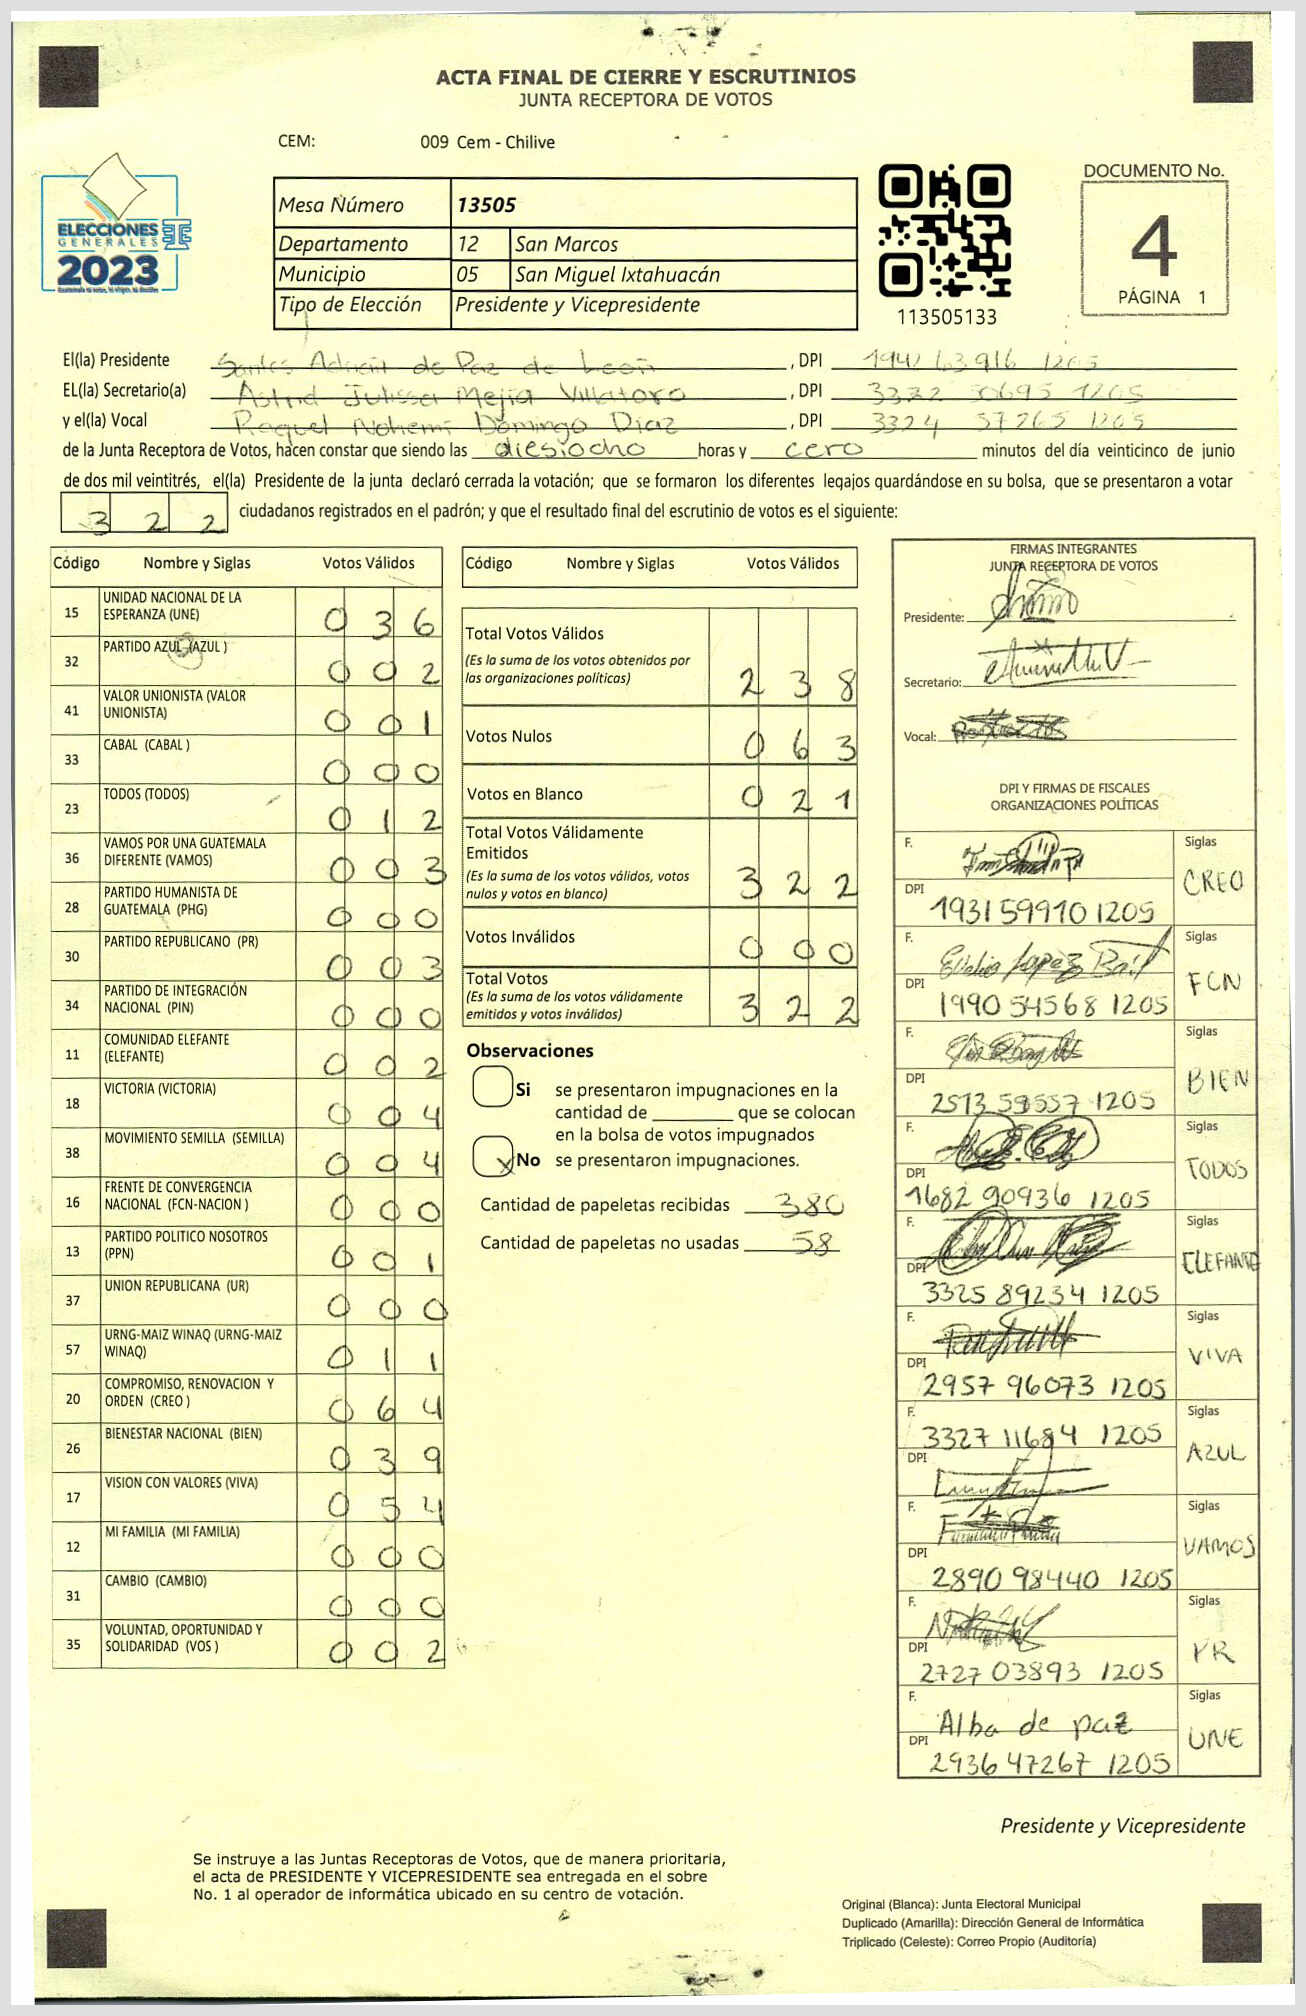 ACTA FINAL DE CIERRE Y ESCRUTINIOS
JUNTA RECEPTORA DE VOTOS
CEM: 009 Cem - Chilive
ELECCIONES
GENERALES
2023
Mesa Número 13505
Departamento 12 San Marcos
Municipio 05 San Miguel Ixtahuacán
Tipo de Elección Presidente y Vicepresidente
113505133
DOCUMENTO No.
4
PÁGINA 1
El(la) Presidente Santos de Paz de León , DPI 1205
EL(la) Secretario(a) Astrid Julissa Mejía Villatoro , DPI 3322 30695 1205
y el(la) Vocal Raquel Nohemi Domingo Diaz , DPI 3324 57265 1205
de la Junta Receptora de Votos, hacen constar que siendo las diesiocho horas y cero minutos del día veinticinco de junio
de dos mil veintitrés, el(la) Presidente de la junta declaró cerrada la votación; que se formaron los diferentes legajos quardándose en su bolsa, que se presentaron a votar
3 2 2 ciudadanos registrados en el padrón; y que el resultado final del escrutinio de votos es el siguiente:
Código Nombre y Siglas Votos Válidos
15 UNIDAD NACIONAL DE LA
ESPERANZA (UNE) 0 3 6
32 PARTIDO AZUL (AZUL ) 0 0 2
41 VALOR UNIONISTA (VALOR
UNIONISTA) 0 0 1
33 CABAL (CABAL ) 0 0 0
23 TODOS (TODOS) 0 1 2
36 VAMOS POR UNA GUATEMALA
DIFERENTE (VAMOS) 0 0 3
28 PARTIDO HUMANISTA DE
GUATEMALA (PHG) 0 0 0
30 PARTIDO REPUBLICANO (PR) 0 0 3
34 PARTIDO DE INTEGRACIÓN
NACIONAL (PIN) 0 0 0
11 COMUNIDAD ELEFANTE
(ELEFANTE) 0 0 2
18 VICTORIA (VICTORIA) 0 0 4
38 MOVIMIENTO SEMILLA (SEMILLA) 0 0 4
16 FRENTE DE CONVERGENCIA
NACIONAL (FCN-NACION ) 0 0 0
13 PARTIDO POLITICO NOSOTROS
(PPN) 0 0 1
37 UNION REPUBLICANA (UR) 0 0 0
57 URNG-MAIZ WINAQ (URNG-MAIZ
WINAQ) 0 1 1
20 COMPROMISO, RENOVACION Y
ORDEN (CREO ) 0 6 4
26 BIENESTAR NACIONAL (BIEN) 0 3 9
17 VISION CON VALORES (VIVA) 0 5 4
12 MI FAMILIA (MI FAMILIA) 0 0 0
31 CAMBIO (CAMBIO) 0 0 0
35 VOLUNTAD, OPORTUNIDAD Y
SOLIDARIDAD (VOS ) 0 0 2
Código Nombre y Siglas Votos Válidos
Total Votos Válidos
(Es la suma de los votos obtenidos por
las organizaciones políticas) 2 3 8
Votos Nulos 0 6 3
Votos en Blanco 0 2 1
Total Votos Válidamente
Emitidos
(Es la suma de los votos válidos, votos
nulos y votos en blanco) 3 2 2
Votos Inválidos 0 0 0
Total Votos
(Es la suma de los votos válidamente
emitidos y votos inválidos) 3 2 2
Observaciones
Si se presentaron impugnaciones en la
cantidad de ________ que se colocan
en la bolsa de votos impugnados
X No se presentaron impugnaciones.
Cantidad de papeletas recibidas 380
Cantidad de papeletas no usadas 58
FIRMAS INTEGRANTES
JUNTA RECEPTORA DE VOTOS
Presidente:
Secretario:
Vocal:
DPI Y FIRMAS DE FISCALES
ORGANIZACIONES POLÍTICAS
F. Siglas
CREO
DPI 1931 59910 1205
F. Siglas
FCN
DPI 1990 54568 1205
F. Siglas
BIEN
DPI 2513 59557 1205
F. Siglas
TODOS
DPI 1682 90936 1205
F. Siglas
ELEFANTE
DPI 3325 89234 1205
F. Siglas
VIVA
DPI 2957 96073 1205
F. Siglas
3327 11684 1205 AZUL
DPI
F. Siglas
VAMOS
DPI 2890 98440 1205
F. Siglas
PR
DPI 2727 03893 1205
F. Siglas
Alba de paz UNE
DPI 2936 47267 1205
Presidente y Vicepresidente
Se instruye a las Juntas Receptoras de Votos, que de manera prioritaria,
el acta de PRESIDENTE Y VICEPRESIDENTE sea entregada en el sobre
No. 1 al operador de informática ubicado en su centro de votación.
Original (Blanca): Junta Electoral Municipal
Duplicado (Amarilla): Dirección General de Informática
Triplicado (Celeste): Correo Propio (Auditoría)